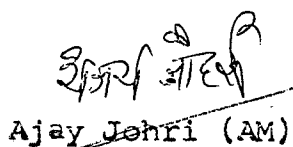 अजय जौहरी
Ajay Johri (AM)